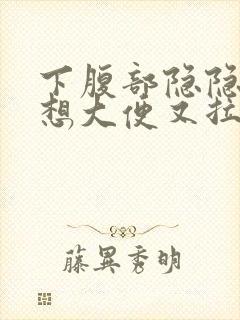 下腹部隐隐
想大便又拉
藤異秀明